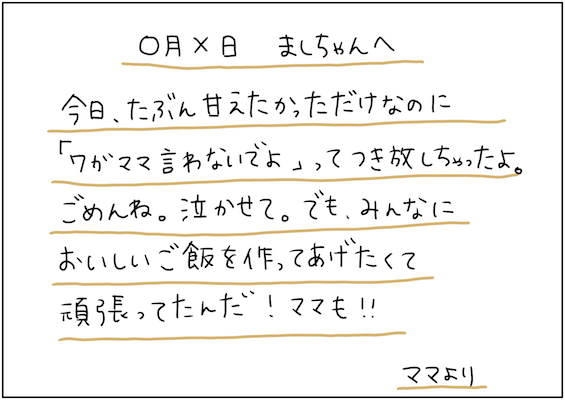 〇月×日 ましちゃんへ
今日、たぶん甘えたかっただけなのに
「ワガママ言わないでよ」ってつき放しちゃったよ。
ごめんね。泣かせて。でも、みんなに
おいしいご飯を作ってあげたくて
頑張ってたんだ！ママも!!
ママより